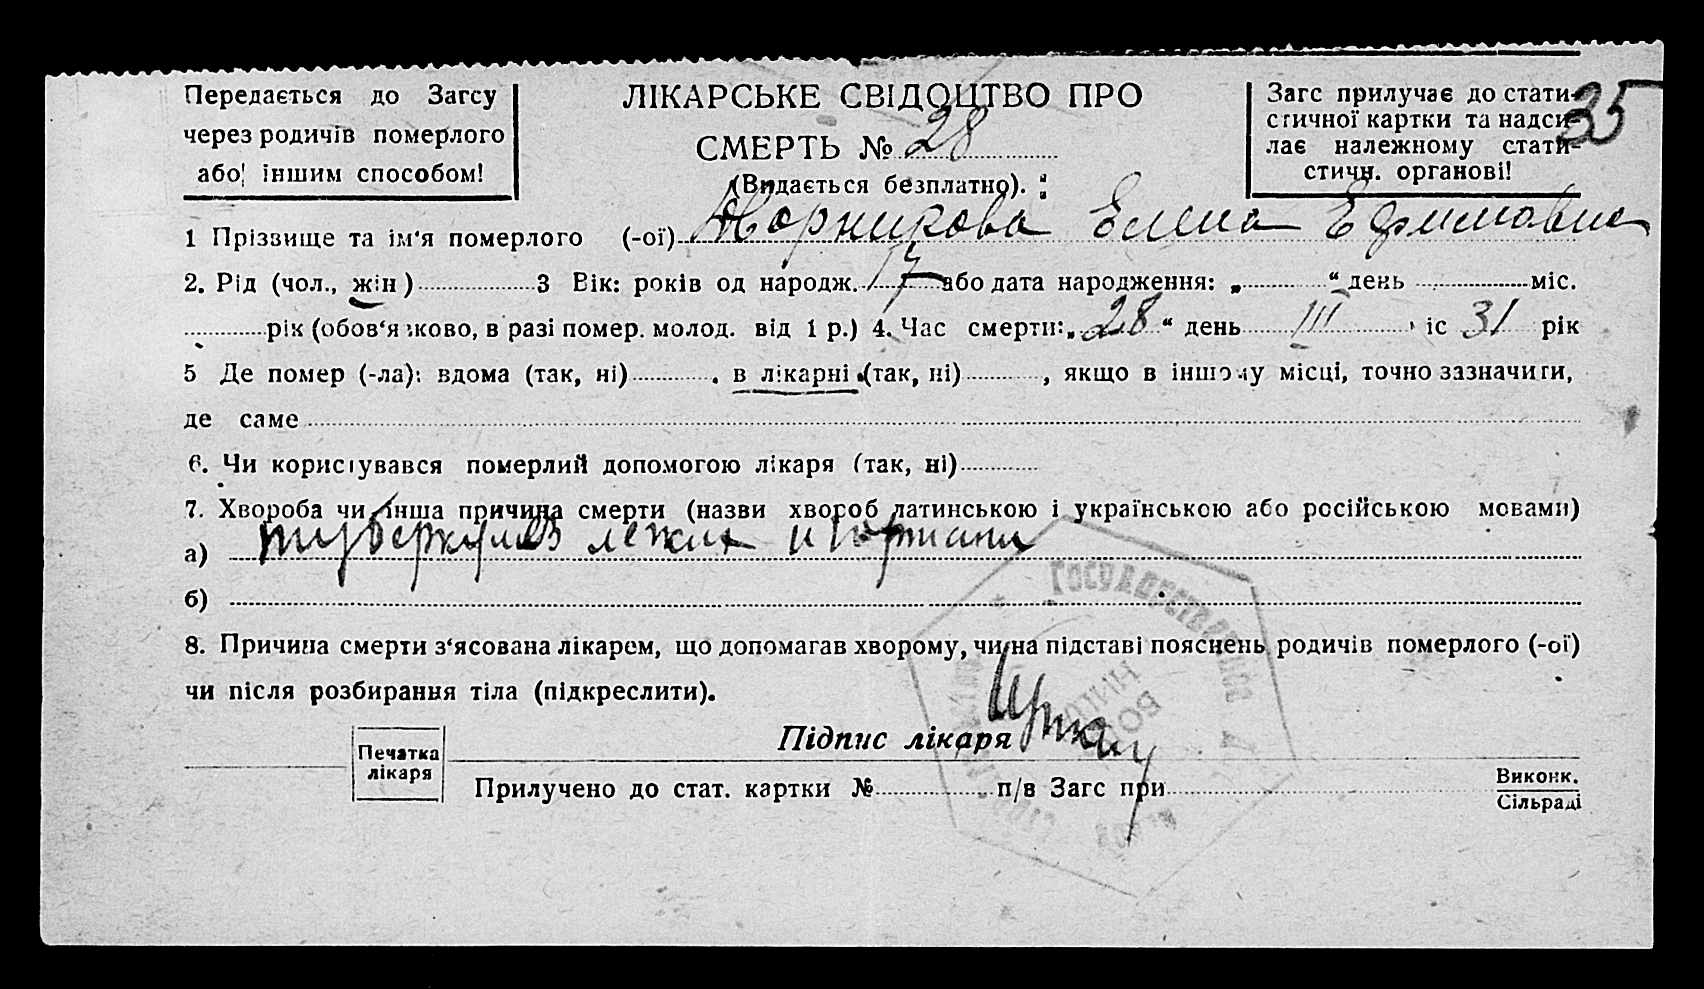 Передається до Загсу
через родичів померлого
або іншим способом!
ЛІКАРСЬКЕ СВІДОЦТВО ПРО
СМЕРТЬ № 28
(Видається безплатно).
Загс прилучає до стати-
стичної картки та надси-
лає належному стати-
стичн. органові!
35
1 Прізвище та ім'я померлого (-ої) Елена Ефимовна
2. Рід (чол., жін) 3 Вік: років од народж. 17 або дата народження: „ “ день міс.
рік (обов'язково, в разі помер. молод. від 1 р.) 4. Час смерти: „28“ день III міс 31 рік
5 Де помер (-ла): вдома (так, ні) , в лікарні (так, ні) , якщо в іншому місці, точно зазначити,
де саме
6. Чи користувався померлий допомогою лікаря (так, ні)
7. Хвороба чи інша причина смерти (назви хвороб латинською і українською або російською мовами)
а) туберкулез легких и гортани
б)
8. Причина смерти з'ясована лікарем, що допомагав хворому, чи на підставі пояснень родичів померлого (-ої)
чи після розбирання тіла (підкреслити).
Печатка
лікаря
Підпис лікаря
Прилучено до стат. картки № п/в Загс при
Виконк.
Сільраді